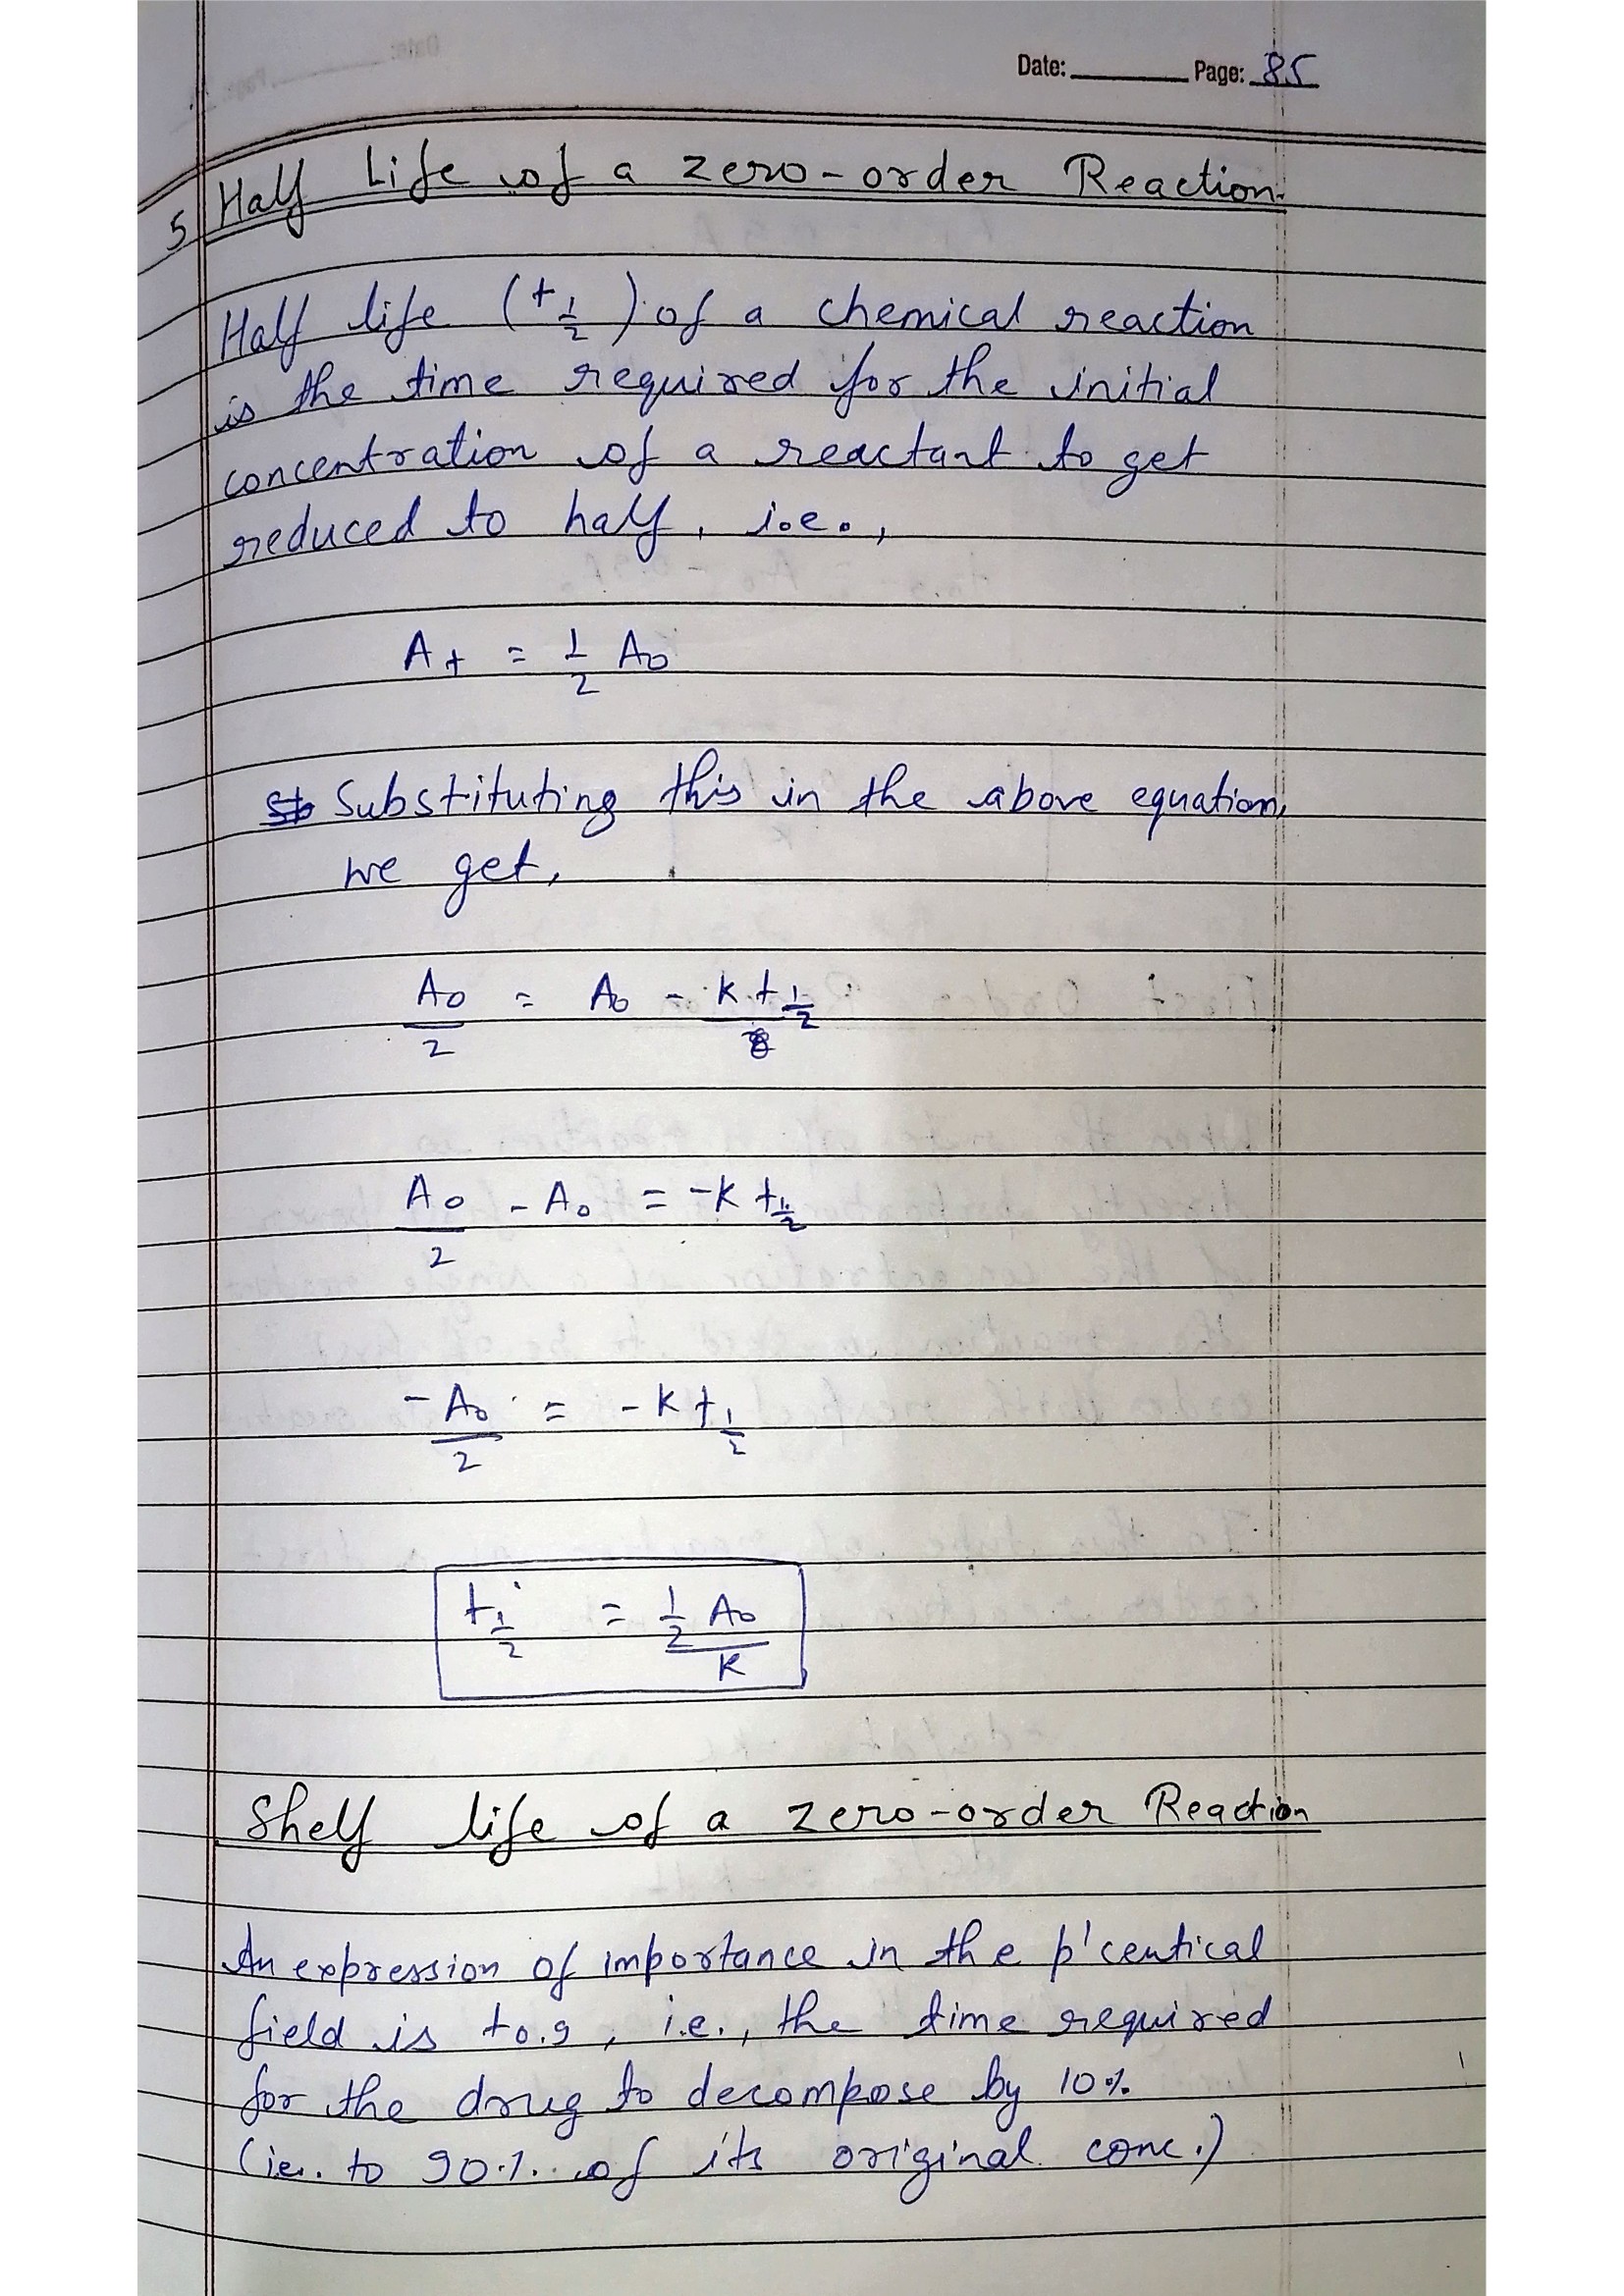 Date: Page: 85
5 Half Life of a zero-order Reaction.
Half life (t 1/2) of a chemical reaction
is the time required for the initial
concentration of a reactant to get
reduced to half, i.e.,
At = 1/2 A0
Substituting this in the above equation,
we get,
A0/2 = A0 - K t1/2
A0/2 - A0 = -K t1/2
-A0/2 = -K t1/2
t1/2 = 1/2 A0 / K
Shelf life of a zero-order Reaction
An expression of importance in the p'ceutical
field is t0.9, i.e., the time required
for the drug to decompose by 10%
(ie. to 90% of its original conc.)